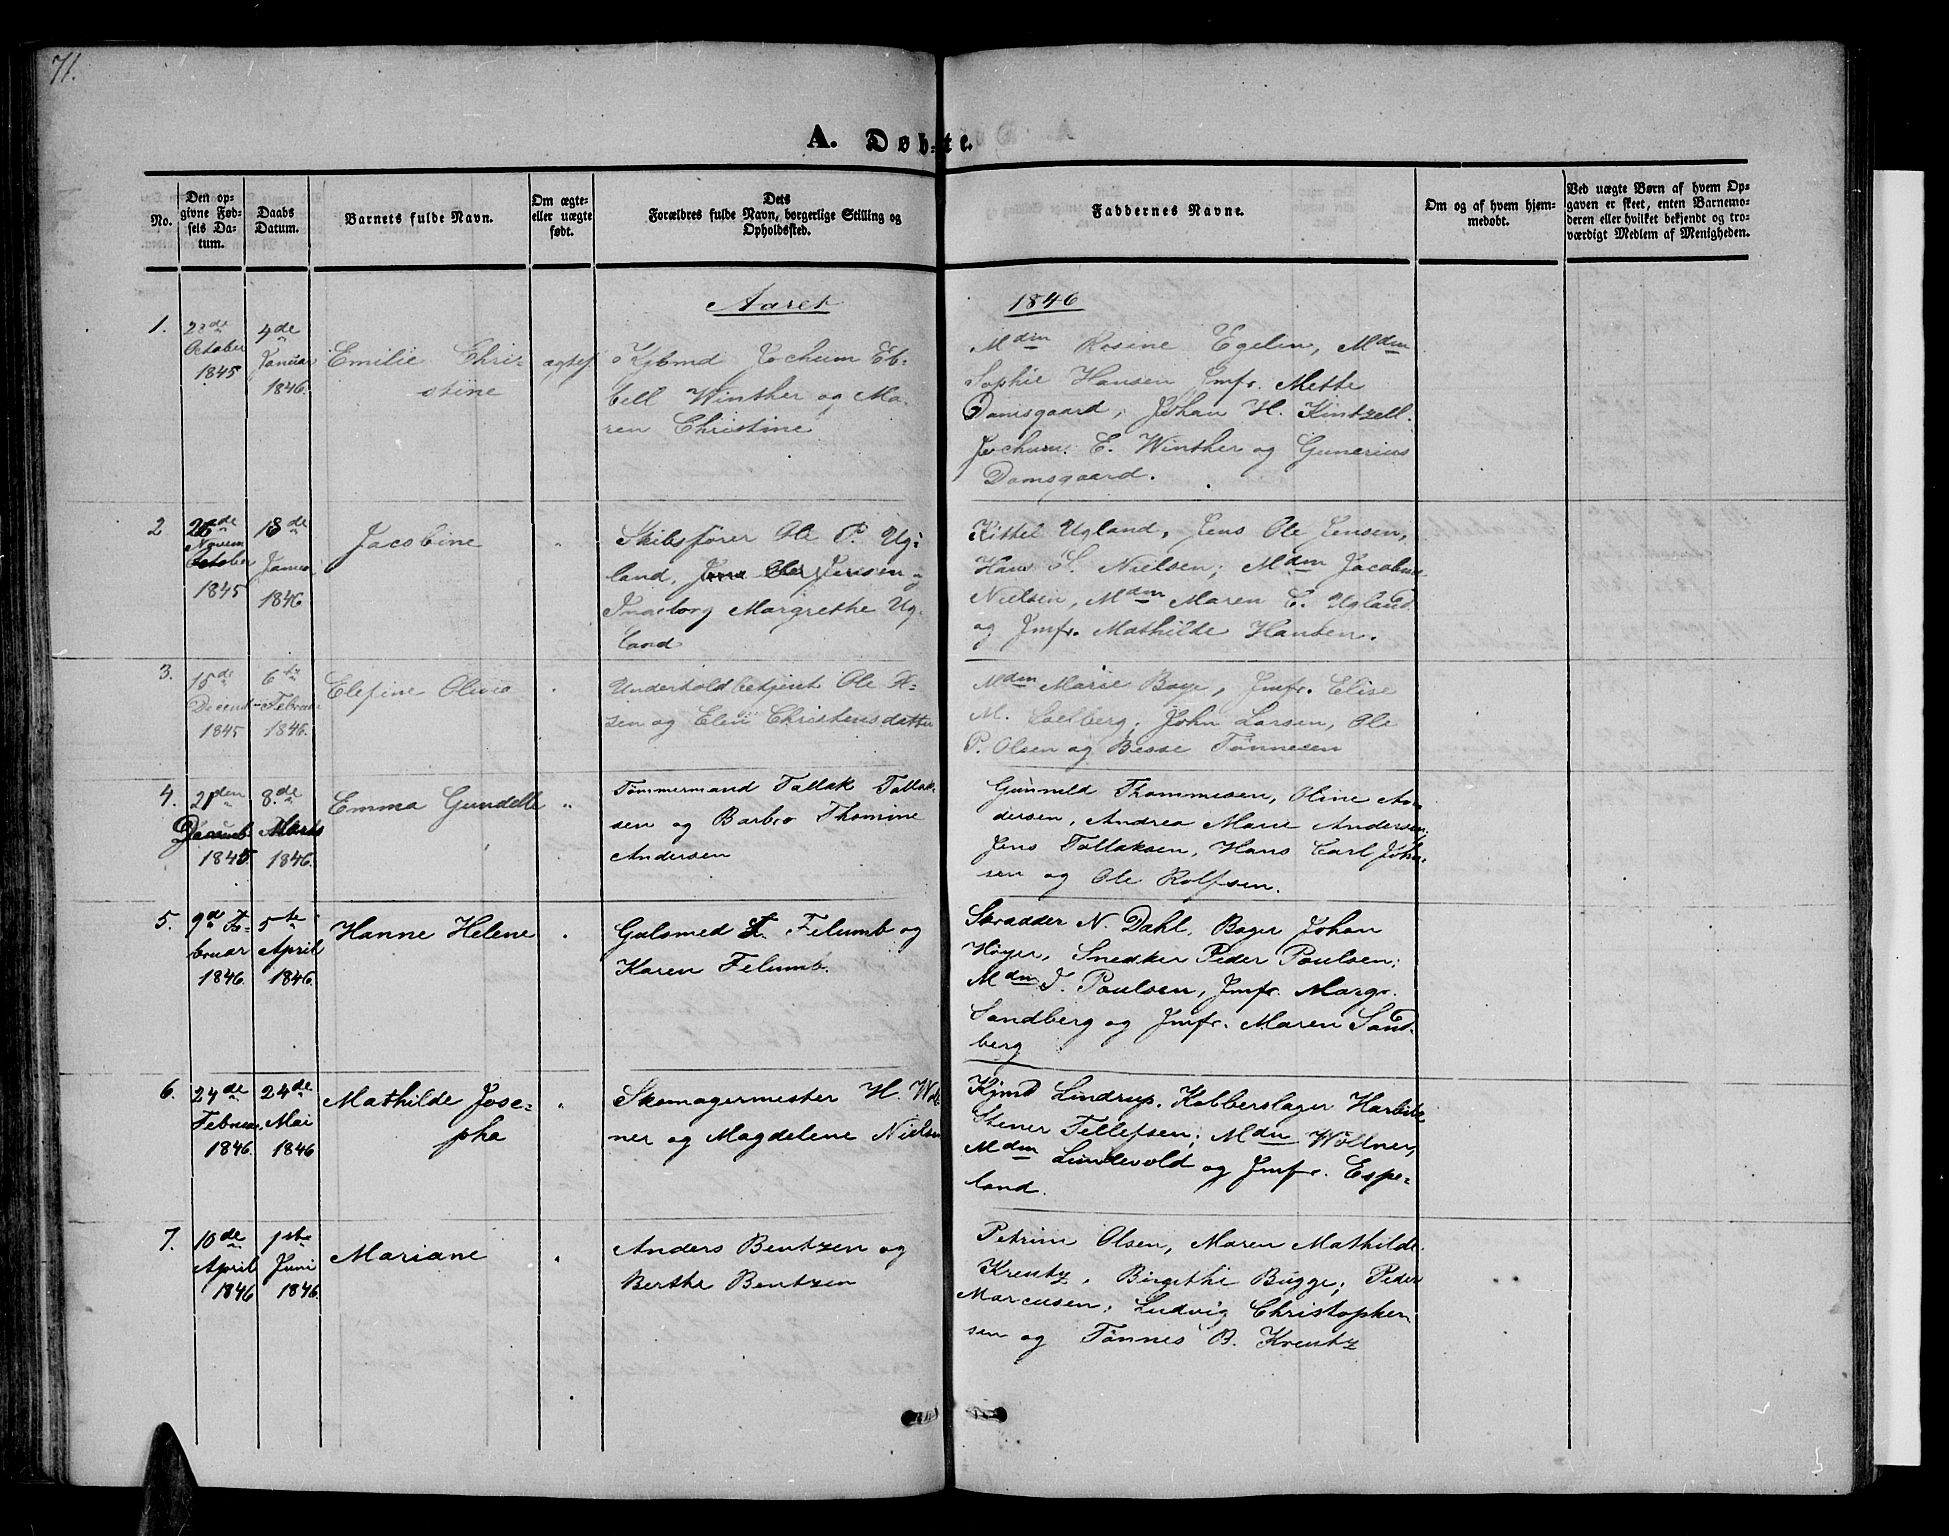 71.
A. Døbte.
No.
Den op-
givne Fød-
sels Da-
tum.
Daabs
Datum.
Barnets fulde Navn.
Om ægte-
eller uægte
født.
Dets
Forældres fulde Navn, borgerlige Stilling og
Opholdssted.
Faddernes Navne.
Om og af hvem hjem-
medøbt.
Ved uægte Børn af hvem Op-
gaven er skeet, enten Barnemo-
deren eller hvilket bekjendt og tro-
værdigt Medlem af Menigheden.
Aaret 1846
1.
28de
October
1845
4de
Januar
1846.
Emilie Chri-
stine
ægtef.
Kjbmd Jochum Eb-
bell Winther og Ma-
ren Christine
Mdm Rosine Egelin, Mdm
Sophie Hansen Jmfr. Mette
Damsgaard, Johan H. Kintzell.
Jochum. E. Winther og Gunerius
Damsgaard.
2
26de
Novem
October
1845
18de
Januar
1846
Jacobine
"
Skibsfører Ole P. Ug-
land, Jens Ole Jensen og
Ingeborg Margrethe Ug-
land
Kittel Ugland, Jens Ole Jensen,
Hans S. Nielsen; Mdm Jacobine
Nielsen, Mdm Maren E. Ugland
og Jmfr. Mathilde Hansen.
3.
15de
Decemb
1845
6te
Februar
1846.
Elefine Olivia
"
Undertoldbetjent Ole A-
sen og Elen Christensdatter
Mdm Marie Boye, Jmfr. Elise
M. Soelberg; John Larsen, Ole
P. Olsen og Besse Tønnesen
4.
21den
Decemb
1845
8de
Marts
1846.
Emma Gundelle
"
Tømmermand Tallak Tallak-
sen og Barbro Thomine
Andersen
Gunnild Thommesen, Oline An-
dersen, Andrea Marie Andersen;
Jens Tallaksen, Hans Carl John-
sen og Ole Rolfsen.
5.
9de Fe-
bruar
1846.
5te
April
1846.
Hanne Helene
"
Gulsmed T. Felumb og
Karen Felumb.
Skrædder N. Dahl, Bager Johan
Høyer, Snedker Peder Poulsen;
Mdm J. Poulsen, Jmfr. Margr.
Sandberg og Jmfr. Maren Sand-
berg
6.
24de
Februar
1846.
24de
Mai
1846
Mathilde Jose-
pha
"
Skomagermester H. Wøll-
ner og Magdelene Nielsen
Kjmd Lindrup. Kobberslager
Stener Tellefsen; Mdm Wöllner,
Mdm Lundevold og Jmfr. Espe-
land.
7.
10de
April
1846
1ste
Juni
1846.
Mariane
"
Anders Bentzen og
Berthe Bentzen
Petrine Olsen, Maren Mathilde
Kreutz, Birgithe Bugge; Peder
Marcusen, Ludvig Christopher-
sen og Tønnes B. Kreutz